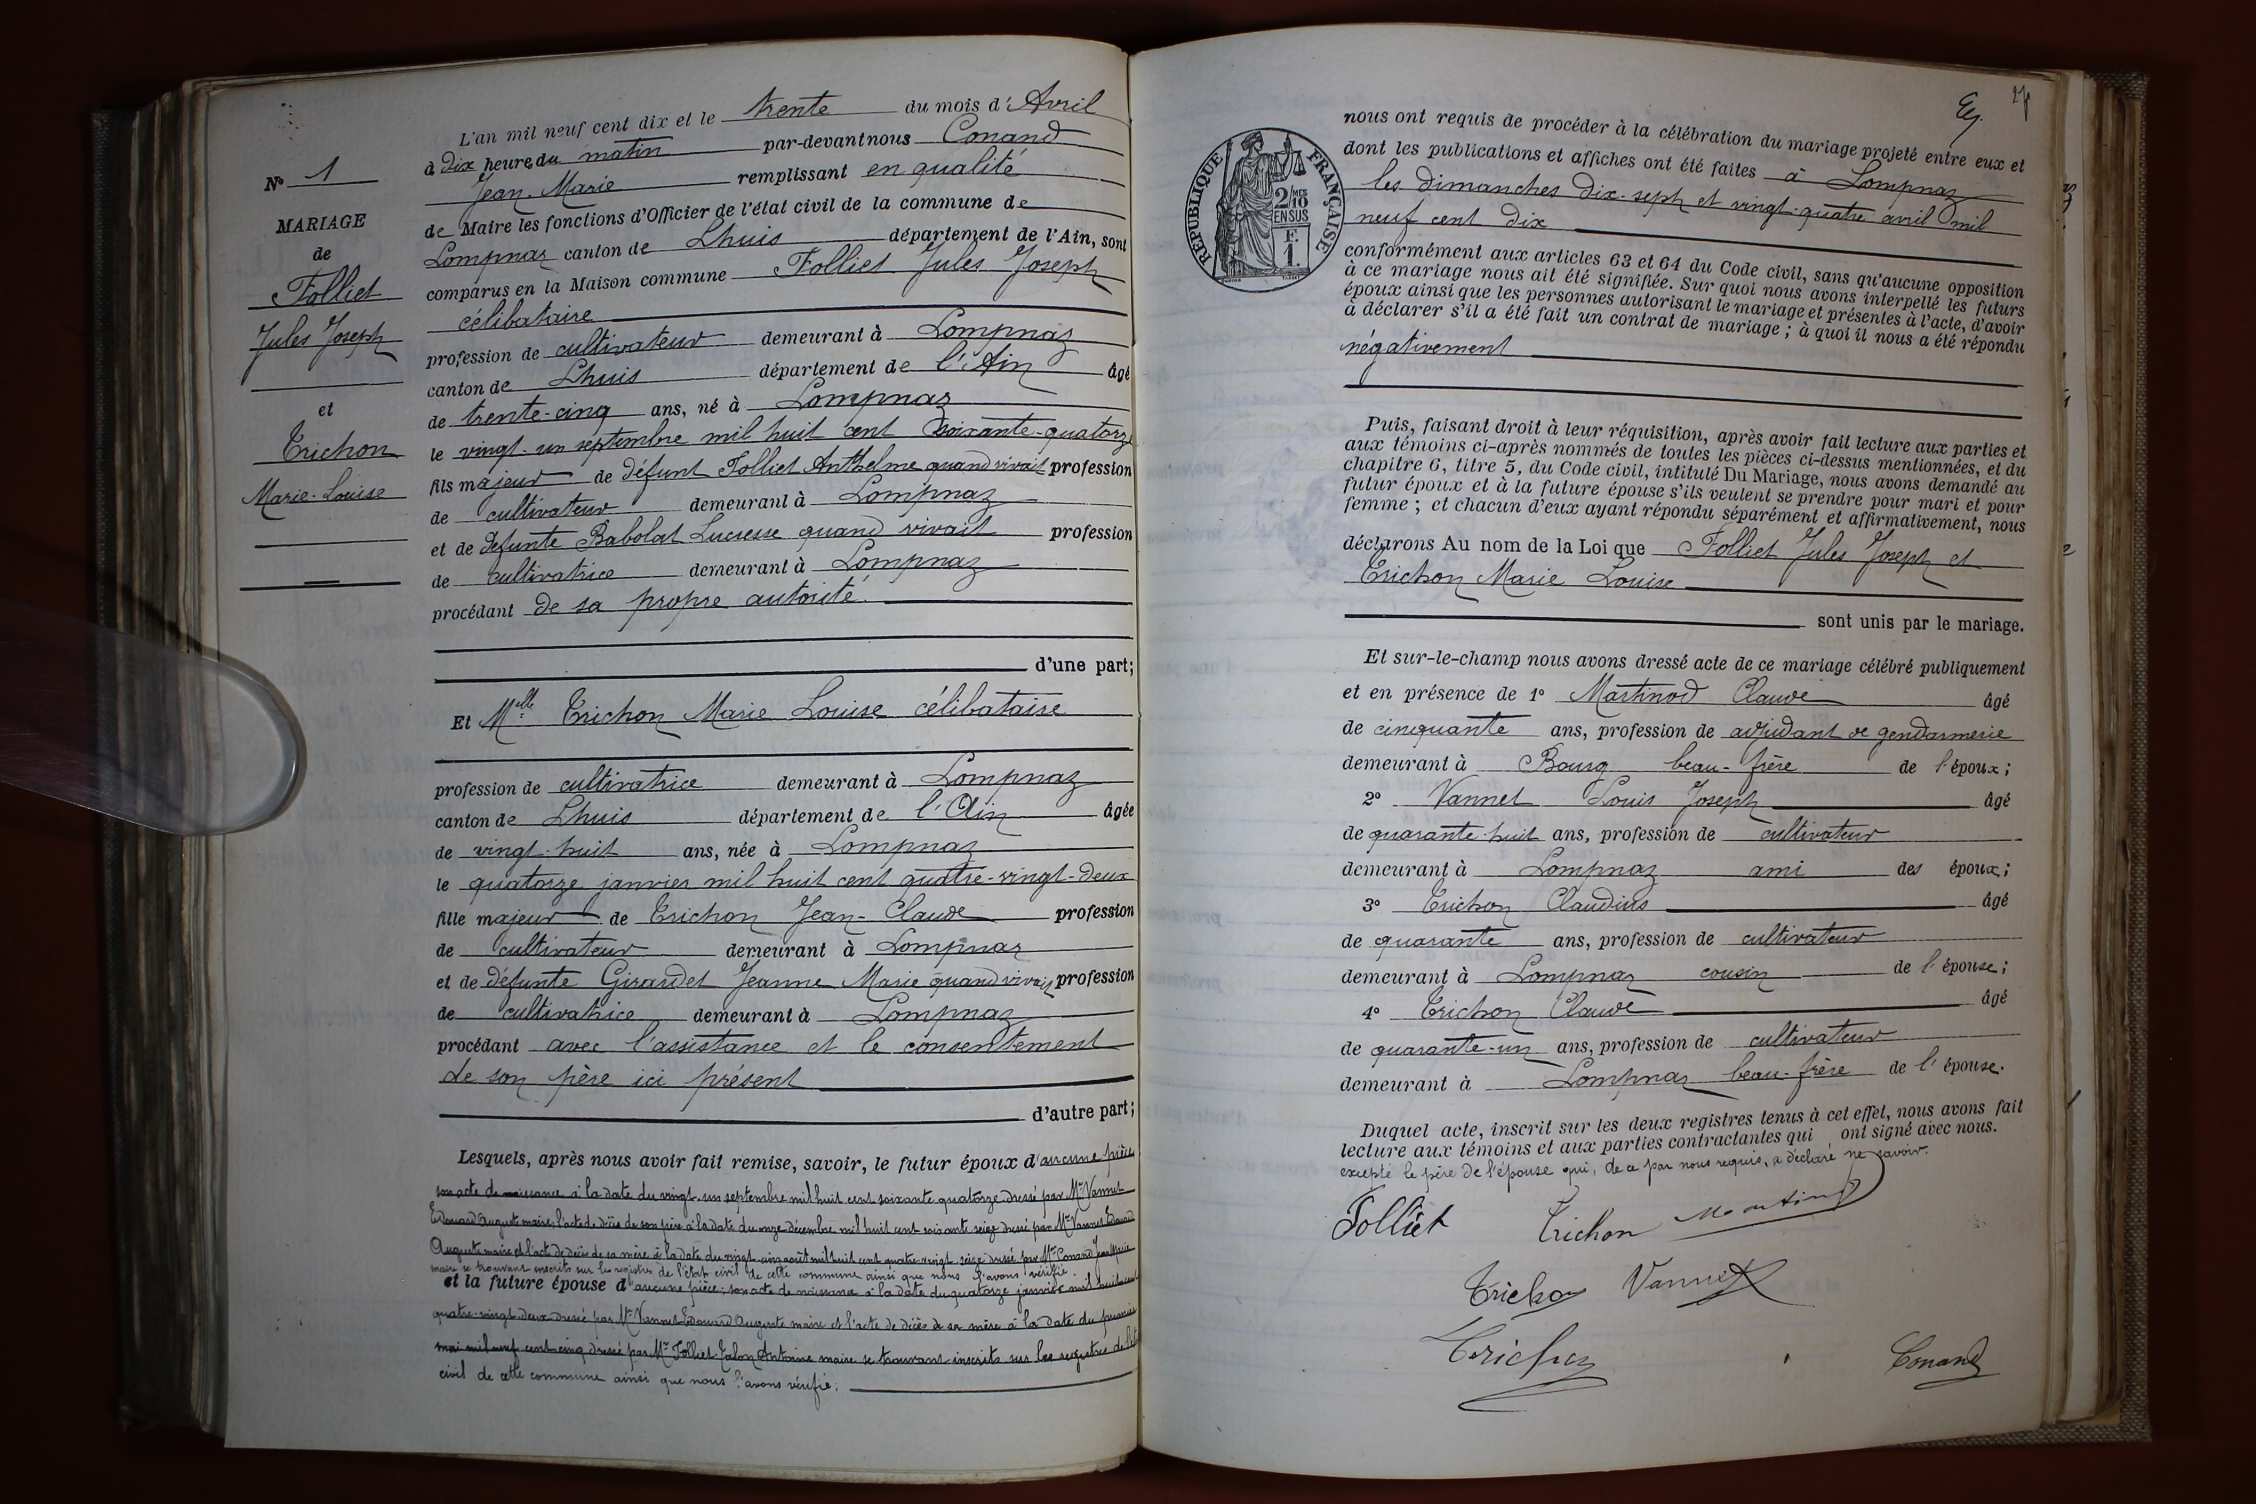 N° 1
MARIAGE
de
Folliet
Jules Joseph
et
Trichon
Marie-Louise
L'an mil neuf cent dix et le trente du mois d'Avril
à dix heures du matin par-devant nous Conand
Jean-Marie remplissant en qualité
de Maire les fonctions d'Officier de l'état civil de la commune de
Lompnaz canton de Lhuis département de l'Ain, sont
comparus en la Maison commune Folliet Jules Joseph
célibataire
profession de cultivateur demeurant à Lompnaz
canton de Lhuis département de l'Ain âgé
de trente-cinq ans, né à Lompnaz
le vingt-un septembre mil huit cent soixante-quatorze
fils majeur de défunt Folliet Anthelme quand vivait profession
de cultivateur demeurant à Lompnaz
et de défunte Babolat Lucresse quand vivait profession
de cultivatrice demeurant à Lompnaz
procédant de sa propre autorité.
d'une part;
Et Melle Trichon Marie Louise célibataire
profession de cultivatrice demeurant à Lompnaz
canton de Lhuis département de l'Ain âgée
de vingt-huit ans, née à Lompnaz
le quatorze janvier mil huit cent quatre-vingt-deux
fille majeur de Trichon Jean-Claude profession
de cultivateur demeurant à Lompnaz
et de défunte Girardet Jeanne Marie quand vivait profession
de cultivatrice demeurant à Lompnaz
procédant avec l'assistance et le consentement
de son père ici présent
d'autre part;
Lesquels, après nous avoir fait remise, savoir, le futur époux d'aucune pièce
son acte de naissance à la date du vingt-un septembre mil huit cent soixante quatorze dressé par Mr Vannet
Edouard Auguste maire, l'acte de décès de son père à la date du onze décembre mil huit cent soixante seize dressé par Mr Vannet Edouard
Auguste maire et l'acte de décès de sa mère à la date du vingt-cinq août mil huit cent quatre-vingt-seize dressé par Mr Conand Jean Marie
maire se trouvant inscrits sur les registres de l'état civil de cette commune ainsi que nous l'avons vérifié.
et la future épouse d'aucune pièce; son acte de naissance à la date du quatorze janvier mil huit cent
quatre-vingt-deux dressé par Mr Vannet Edouard Auguste maire et l'acte de décès de sa mère à la date du premier
mai mil neuf cent cinq dressé par Mr Folliet Antoine maire se trouvant inscrits sur les registres de l'état
civil de cette commune ainsi que nous l'avons vérifié.
27
RÉPUBLIQUE FRANÇAISE
2/10 MES
EN SUS
F.
1.
nous ont requis de procéder à la célébration du mariage projeté entre eux et
dont les publications et affiches ont été faites à Lompnaz
les dimanches dix-sept et vingt-quatre avril mil
neuf cent dix
conformément aux articles 63 et 64 du Code civil, sans qu'aucune opposition
à ce mariage nous ait été signifiée. Sur quoi nous avons interpellé les futurs
époux ainsi que les personnes autorisant le mariage et présentes à l'acte, d'avoir
à déclarer s'il a été fait un contrat de mariage; à quoi il nous a été répondu
négativement
Puis, faisant droit à leur réquisition, après avoir fait lecture aux parties et
aux témoins ci-après nommés de toutes les pièces ci-dessus mentionnées, et du
chapitre 6, titre 5, du Code civil, intitulé Du Mariage, nous avons demandé au
futur époux et à la future épouse s'ils veulent se prendre pour mari et pour
femme; et chacun d'eux ayant répondu séparément et affirmativement, nous
déclarons Au nom de la Loi que Folliet Jules Joseph et
Trichon Marie Louise
sont unis par le mariage.
Et sur-le-champ nous avons dressé acte de ce mariage célébré publiquement
et en présence de 1° Martinod Claude âgé
de cinquante ans, profession de adjudant de gendarmerie
demeurant à Bourg beau-frère de l'époux;
2° Vannet Louis Joseph âgé
de quarante-huit ans, profession de cultivateur
demeurant à Lompnaz ami des époux;
3° Trichon Claudius âgé
de quarante ans, profession de cultivateur
demeurant à Lompnaz cousin de l'épouse;
4° Trichon Claude âgé
de quarante-un ans, profession de cultivateur
demeurant à Lompnaz beau-frère de l'épouse.
Duquel acte, inscrit sur les deux registres tenus à cet effet, nous avons fait
lecture aux témoins et aux parties contractantes qui ont signé avec nous.
excepté le père de l'épouse qui, de ce par nous requis, a déclaré ne savoir.
Folliet Trichon Martinod
Trichon Vannet
Trichon Conand